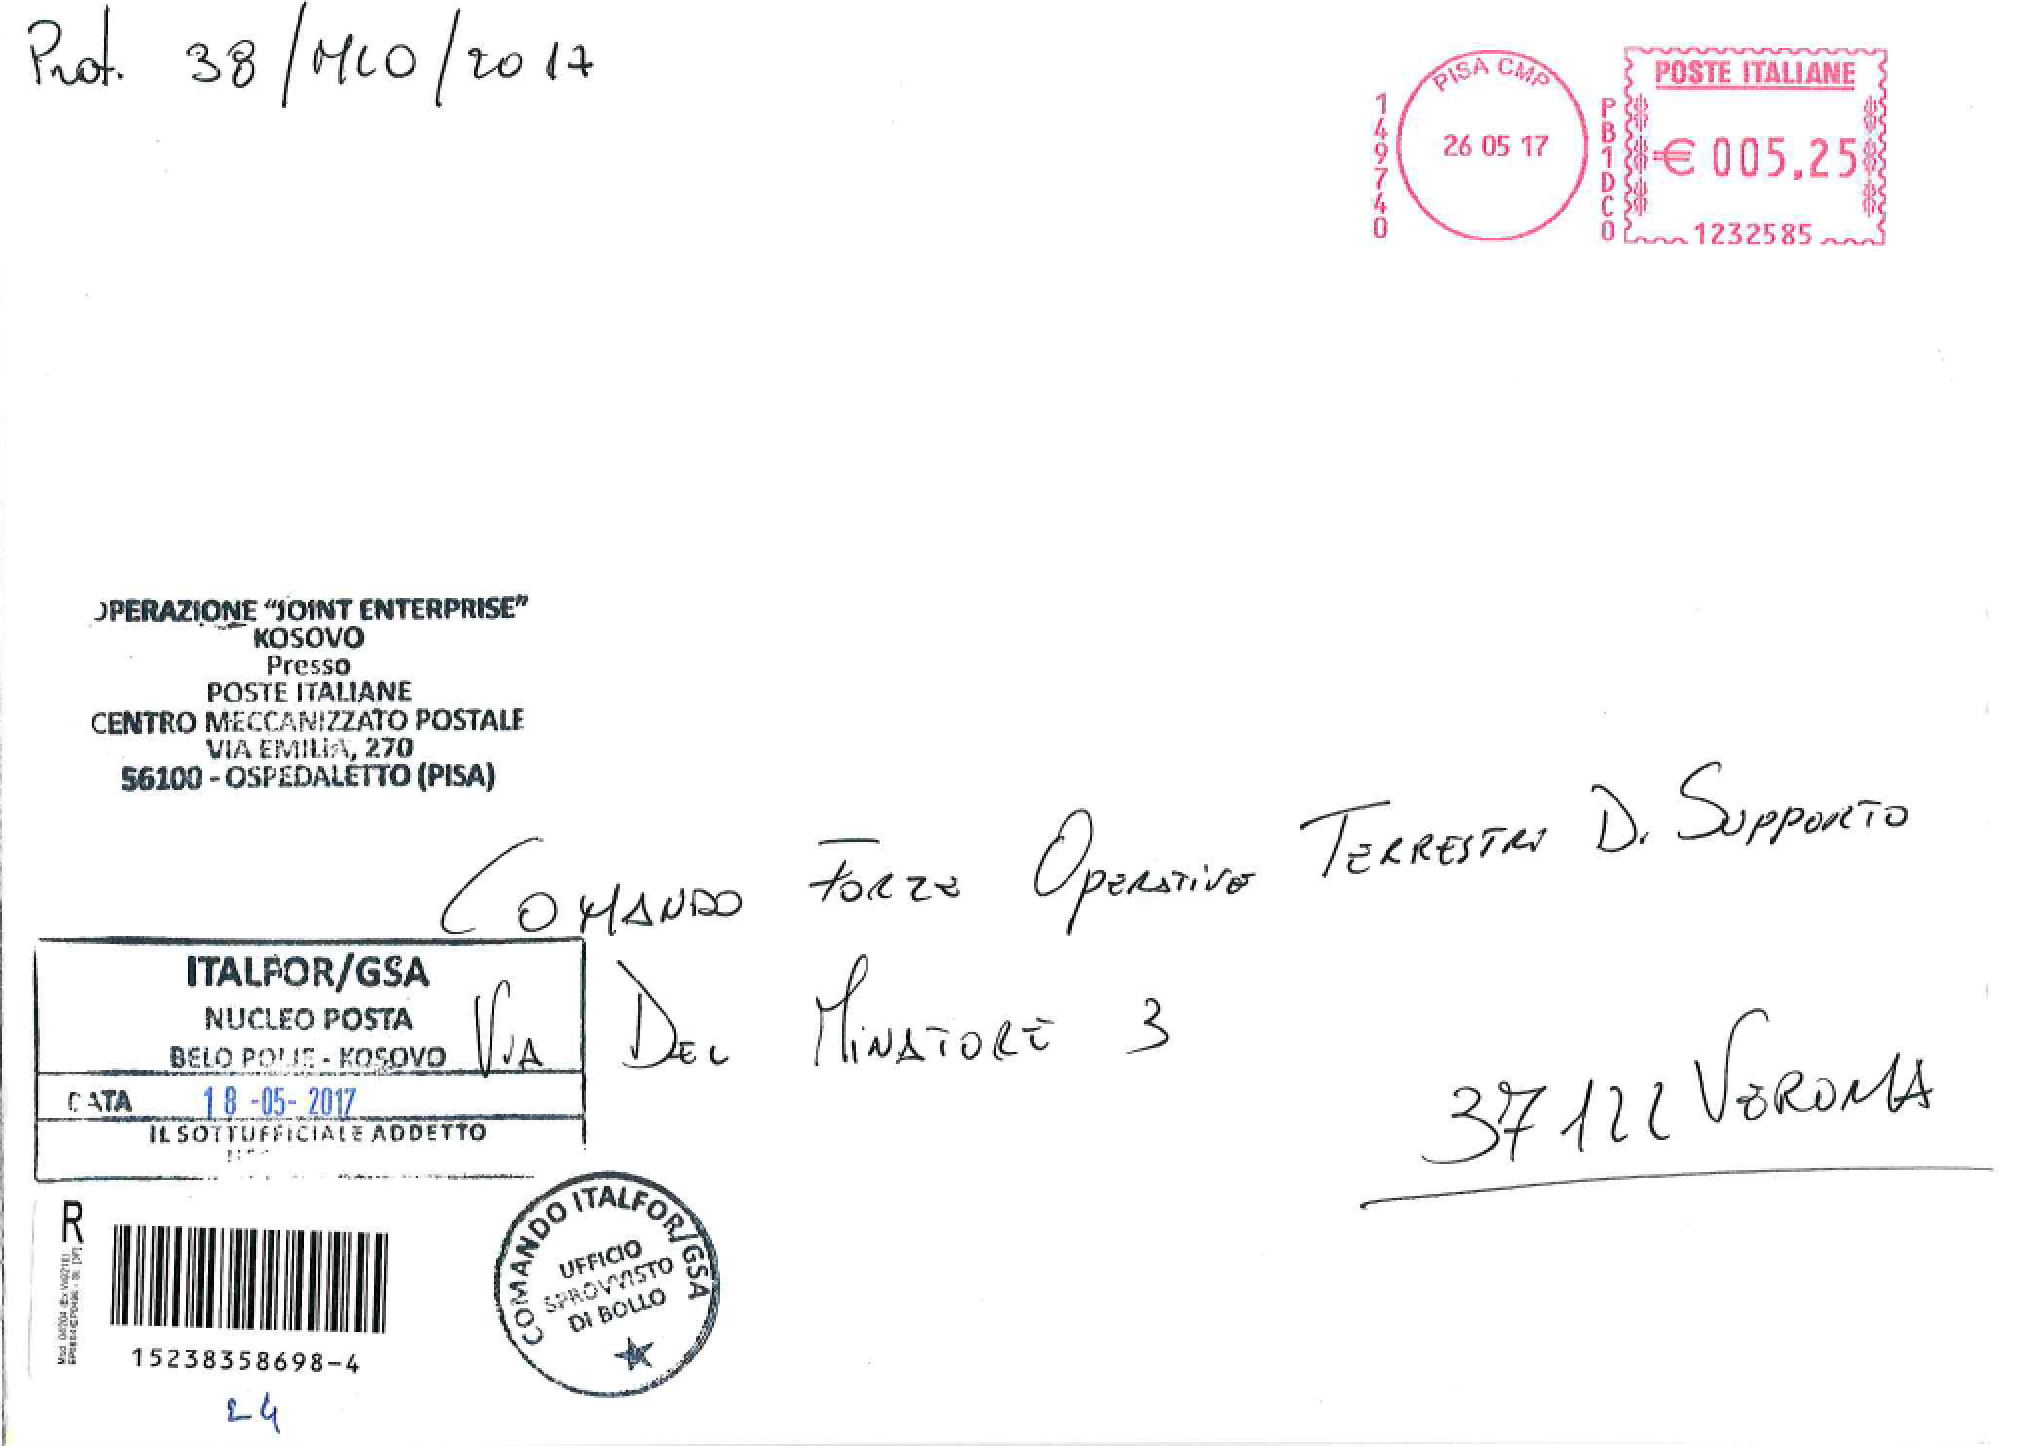 Prot. 38/MLO/2017
PISA CMP
26 05 17
149740
PB1DC0
POSTE ITALIANE
€ 005,25
1232585
OPERAZIONE “JOINT ENTERPRISE”
KOSOVO
Presso
POSTE ITALIANE
CENTRO MECCANIZZATO POSTALE
VIA EMILIA, 270
56100 - OSPEDALETTO (PISA)
COMANDO FORZE OPERATIVE TERRESTRI DI SUPPORTO
VIA DEL MINATORE 3
37122 VERONA
ITALFOR/GSA
NUCLEO POSTA
BELO POLJE - KOSOVO
DATA 18 -05- 2017
IL SOTTUFFICIALE ADDETTO
R
15238358698-4
24
COMANDO ITALFOR/GSA
UFFICIO
SPROVVISTO
DI BOLLO